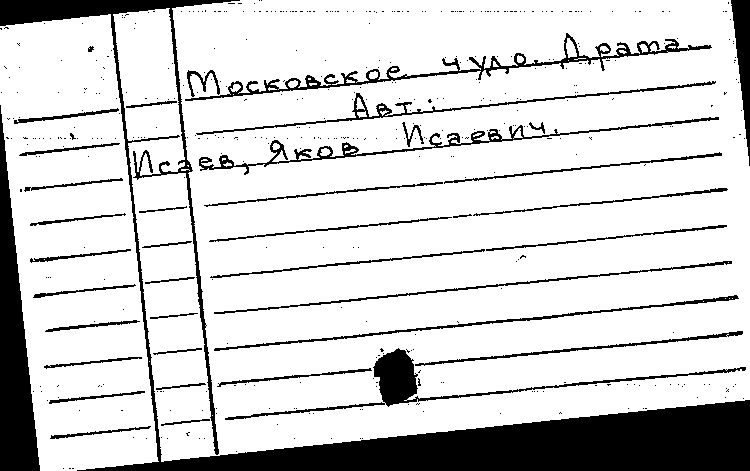 Московское чудо. Драма.
Авт.:
Исаев, Яков Исаевич.